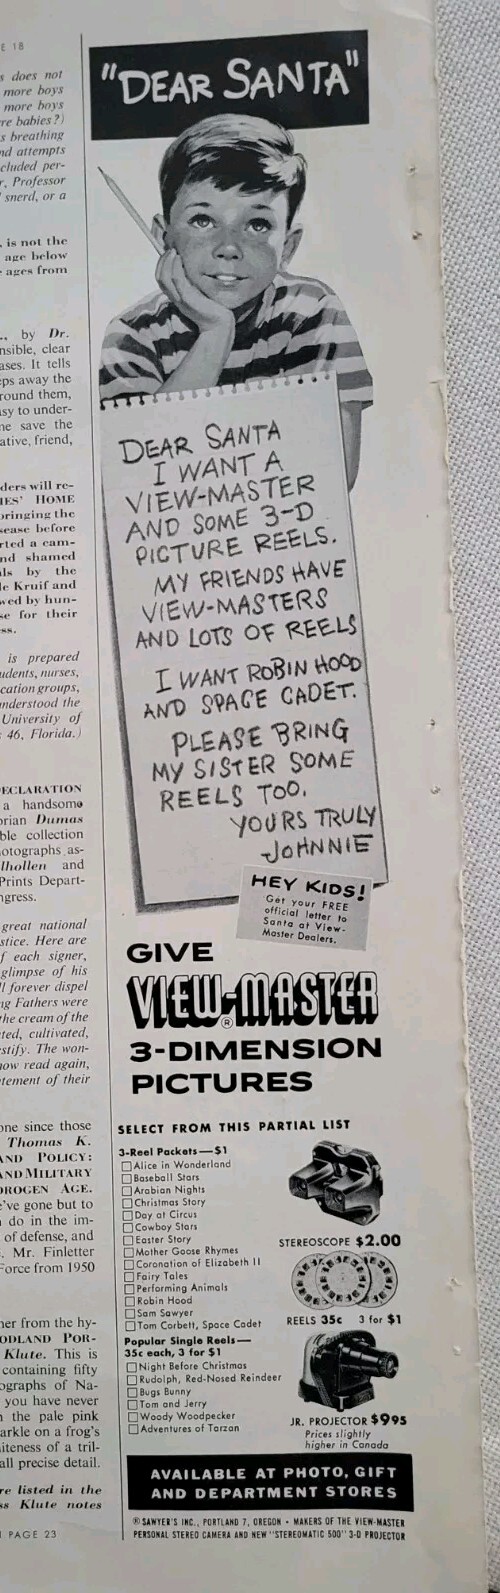 E 18
s does not
more boys
more boys
re babies?)
s breathing
nd attempts
cluded per-
r, Professor
snerd, or a
, is not the
age below
ages from
., by Dr.
nsible, clear
ases. It tells
eps away the
round them,
asy to under-
ne save the
ative, friend,
ders will re-
IES' HOME
bringing the
sease before
rted a cam-
nd shamed
als by the
le Kruif and
wed by hun-
se for their
ss.
is prepared
udents, nurses,
cation groups,
understood the
University of
46, Florida.)
ECLARATION
a handsome
orian Dumas
ble collection
otographs as-
lhollen and
Prints Depart-
ngress.
great national
stice. Here are
f each signer,
glimpse of his
ll forever dispel
ng Fathers were
the cream of the
ted, cultivated,
stify. The won-
now read again,
tement of their
one since those
Thomas K.
AND POLICY:
AND MILITARY
DROGEN AGE.
e've gone but to
do in the im-
of defense, and
. Mr. Finletter
Force from 1950
her from the hy-
ODLAND POR-
Klute. This is
containing fifty
ographs of Na-
you have never
n the pale pink
park on a frog's
iteness of a tril-
all precise detail.
re listed in the
ss Klute notes
PAGE 23
"DEAR SANTA"
DEAR SANTA
I WANT A
VIEW-MASTER
AND SOME 3-D
PICTURE REELS.
MY FRIENDS HAVE
VIEW-MASTERS
AND LOTS OF REELS
I WANT ROBIN HOOD
AND SPACE CADET.
PLEASE BRING
MY SISTER SOME
REELS TOO.
YOURS TRULY
JOHNNIE
HEY KIDS!
Get your FREE
official letter to
Santa at View-
Master Dealers.
GIVE
VIEW-MASTER®
3-DIMENSION
PICTURES
SELECT FROM THIS PARTIAL LIST
3-Reel Packets—$1
Alice in Wonderland
Baseball Stars
Arabian Nights
Christmas Story
Day at Circus
Cowboy Stars
Easter Story
Mother Goose Rhymes
Coronation of Elizabeth II
Fairy Tales
Performing Animals
Robin Hood
Sam Sawyer
Tom Corbett, Space Cadet
Popular Single Reels—
35c each, 3 for $1
Night Before Christmas
Rudolph, Red-Nosed Reindeer
Bugs Bunny
Tom and Jerry
Woody Woodpecker
Adventures of Tarzan
STEREOSCOPE $2.00
REELS 35c 3 for $1
JR. PROJECTOR $9.95
Prices slightly
higher in Canada
AVAILABLE AT PHOTO, GIFT
AND DEPARTMENT STORES
® SAWYER'S INC., PORTLAND 7, OREGON • MAKERS OF THE VIEW-MASTER
PERSONAL STEREO CAMERA AND NEW "STEREOMATIC 500" 3-D PROJECTOR